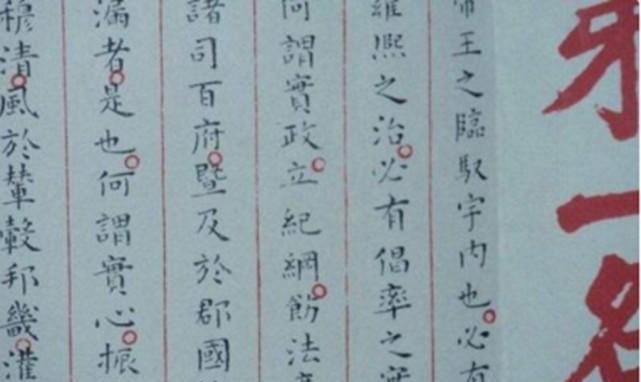 一名
帝王之臨馭宇內也必有
雍熙之治必有倡率之實
何謂實政立紀綱飭法度
諸司百府暨及於郡國
漏者是也何謂實心振
穆清風於輦轂邦畿灌